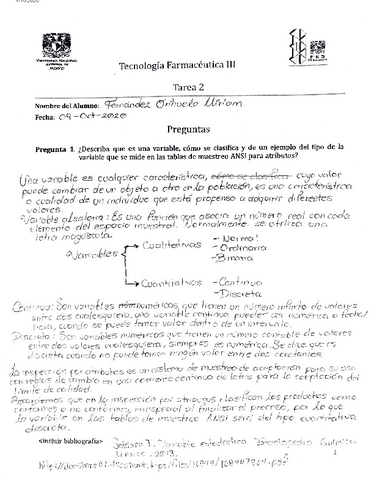 Tecnología Farmacéutica III
Tarea 2
Nombre del Alumno: Fernández Orihuela Miriam
Fecha: 09-Oct-2020
Preguntas
Pregunta 1. ¿Describa que es una variable, cómo se clasifica y de un ejemplo del tipo de la
variable que se mide en las tablas de muestreo ANSI para atributos?
Una variable es cualquier característica, cómo se clasifica cuyo valor
puede cambiar de un objeto a otro en la población, es una característica
o cualidad de un individuo que está propenso a adquirir diferentes
valores.
Variable aleatoria: Es una función que asocia un número real con cada
elemento del espacio muestral. Normalmente se utiliza una
letra mayúscula.
Variables
Cualitativas
- Nominal
- Ordinaria
- Binaria
Cuantitativas
- Continua
- Discreta
Continua: Son variables numéricas que tienen un número infinito de valores
entre dos cualesquiera, una variable continua puede ser numérica o fecha/
hora, cuando se puede tomar valor dentro de un intervalo.
Discreta: Son variables numéricas que tienen un número contable de valores
entre dos valores cualesquiera, siempre es numérica. Se dice que es
discreta cuando no puede tomar ningún valor entre dos
La inspección por atributos es un sistema de muestreo de aceptación para su uso
con reglas de cambio en una corriente continua de lotes para la aceptación del
límite de calidad.
Recordemos que en la inspección por atributos clasifican los productos como
conformes o no conformes, al finalizar el proceso, por lo que
la variable en las tablas de muestreo ANSI será del tipo cuantitativa
discreta.
<Incluir bibliografía>
Variable estadística. Enciclopedia
México, 2013.